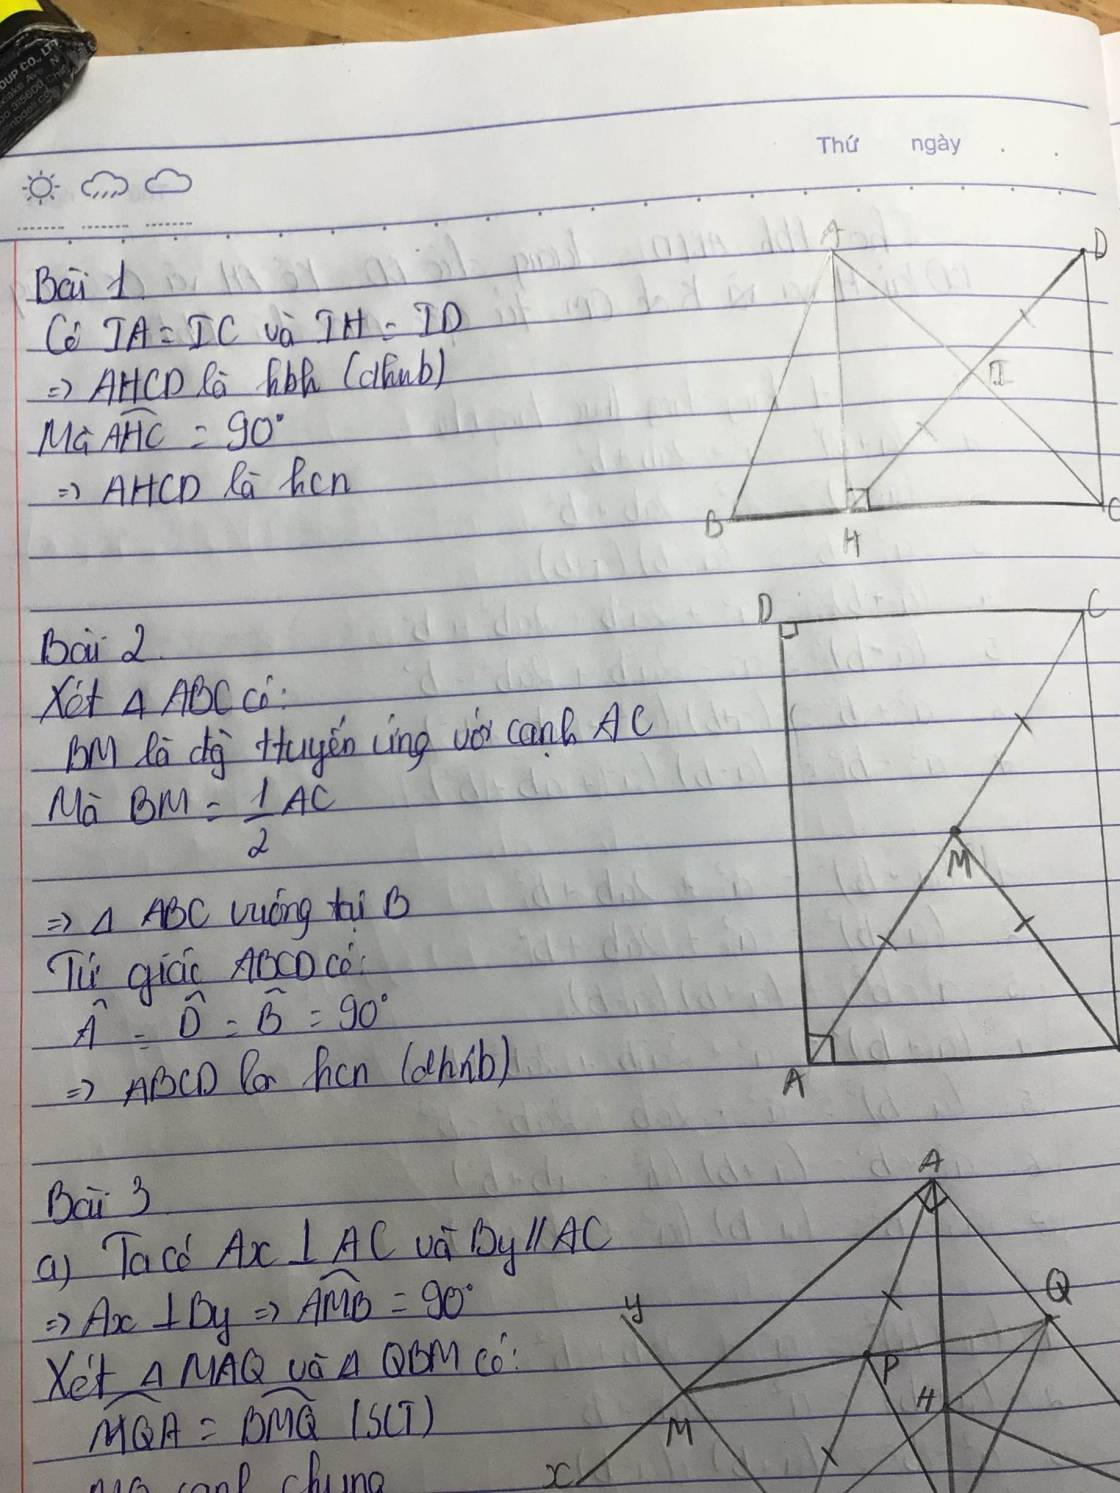 GROUP CO., LT
Thứ ngày
Bài 1
Có IA = IC và IH = ID
=> AHCD là hbh (dhnb)
Mà AHC = 90°
=> AHCD là hcn
A
D
I
B
H
C
Bài 2
Xét Δ ABC có:
BM là đg tuyến ứng với cạnh AC
Mà BM = 1/2 AC
=> Δ ABC vuông tại B
Tứ giác ABCD có:
Â = D̂ = B̂ = 90°
=> ABCD là hcn (dhnb)
D
C
M
A
Bài 3
a) Ta có Ax ⊥ AC và By // AC
=> Ax ⊥ By => AMB = 90°
Xét Δ MAQ và Δ QBM có:
MQA = BMQ (SLT)
MQ cạnh chung
A
Q
y
P
H
M
x